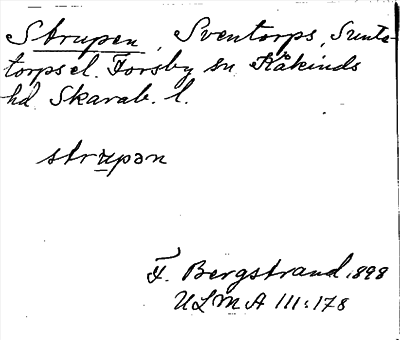 Strupen, Sventorps, Sunte-
torps el. Forsby sn Kåkinds
hd. Skarab. l.
strupən
F. Bergstrand 1898
ULMA 111:178